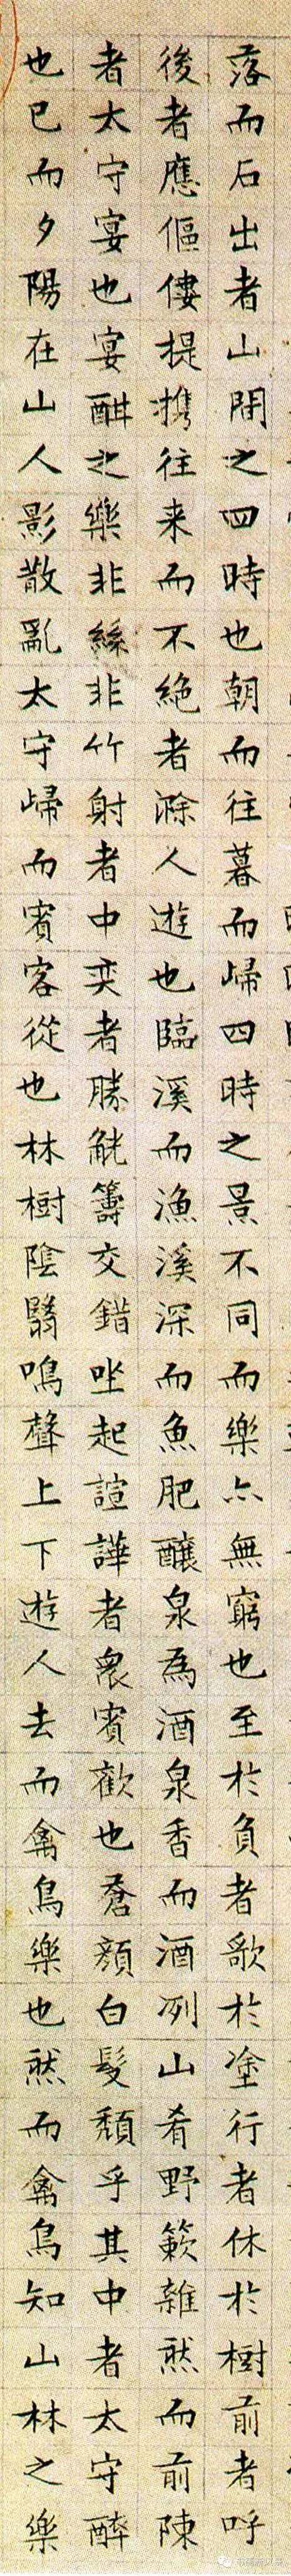 落而石出者山間之四時也朝而往暮而歸四時之景不同而樂亦無窮也至於負者歌於塗行者休於樹前者呼
後者應傴僂提携往来而不絕者滁人遊也臨溪而漁溪深而魚肥釀泉為酒泉香而酒冽山肴野蔌雜然而前陳
者太守宴也宴酣之樂非絲非竹射者中奕者勝觥籌交錯坐起諠譁者衆賓歡也蒼顏白髮頹乎其中者太守醉
也已而夕陽在山人影散亂太守歸而賓客從也林樹陰翳鳴聲上下遊人去而禽鳥樂也然而禽鳥知山林之樂